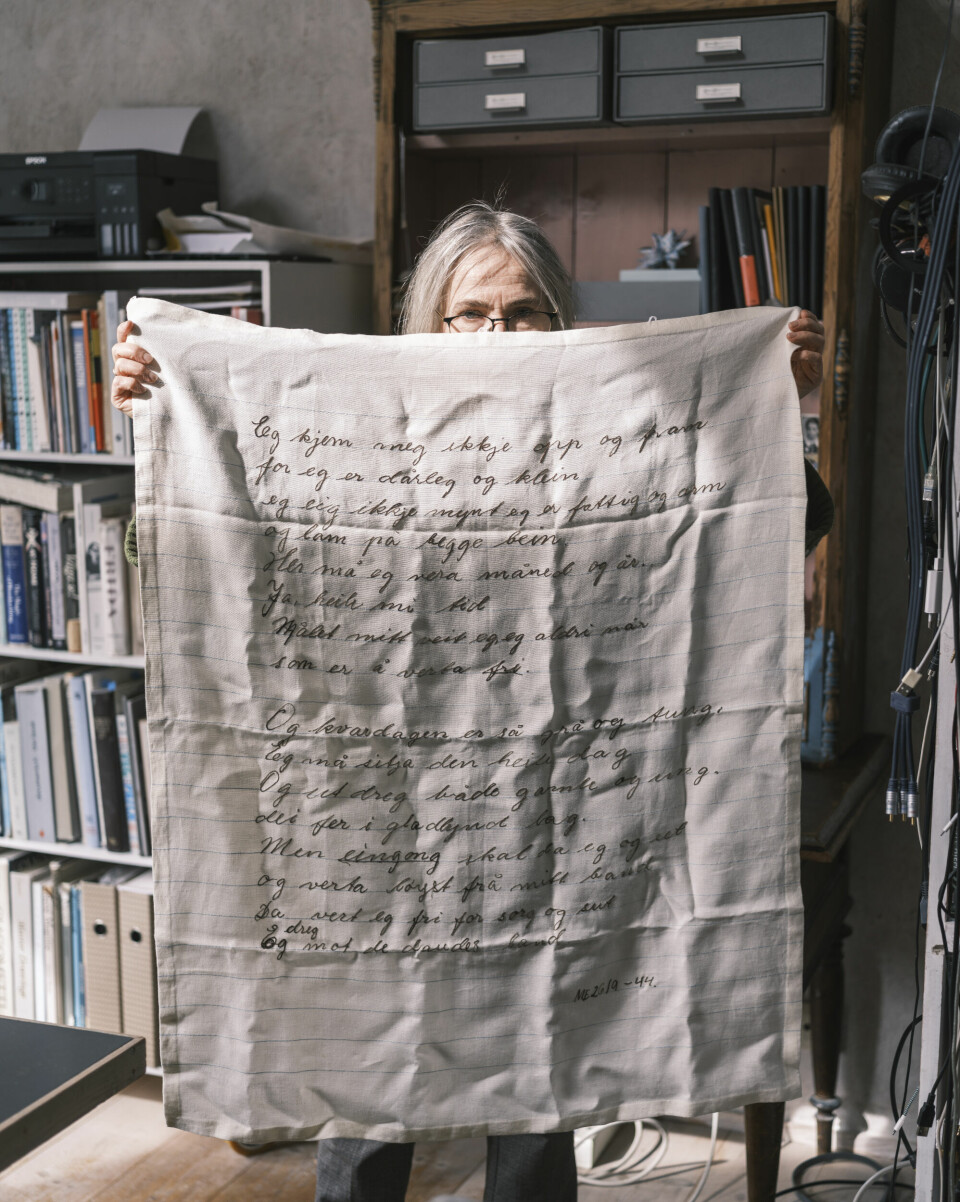 EPSON
Eg kjem meg ikkje opp og fram
for eg er dårleg og klein
eg eig ikkje mynt eg er fattig og arm
og lam på begge bein
Her må eg vera måned og år.
Ja, heile mi tid
Målet mitt veit eg, eg aldri når
som er å verta fri.
Og kvardagen er så grå og tung,
Eg må sitja den heile dag
Og ut dreg både gamle og ung.
dei fer i gladlynd lag.
Men eingong skal da eg og ut
og verta løyst frå mitt band
Da vert eg fri for sorg og sut
dreg
Eg mot de daudes land
26/9-44.